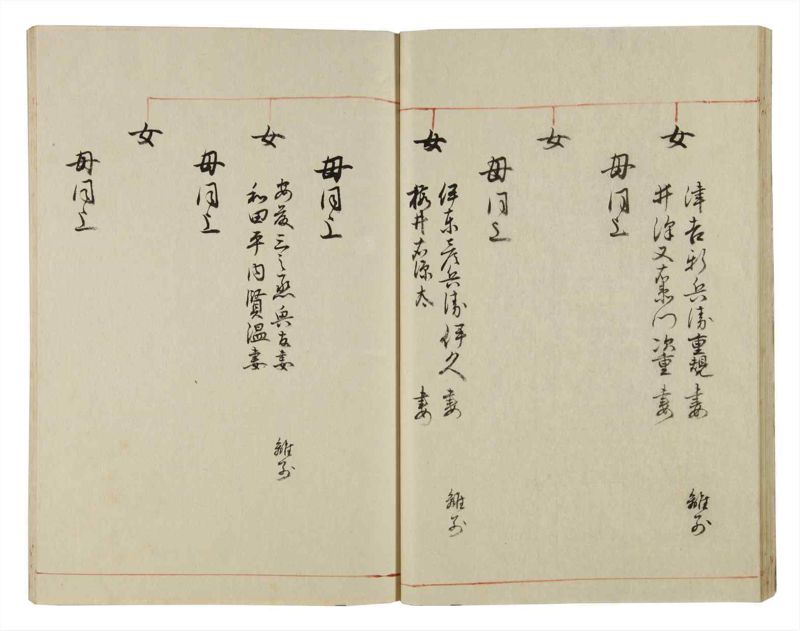 女
津田新兵衛重規妻 離別
井深又右衛門次重妻
母同上
女
母同上
女
伊東彦兵衛伊久妻 離別
桜井右源太 妻
母同上
女
安藤三之丞興友妻 離別
和田平内賢温妻
母同上
女
母同上